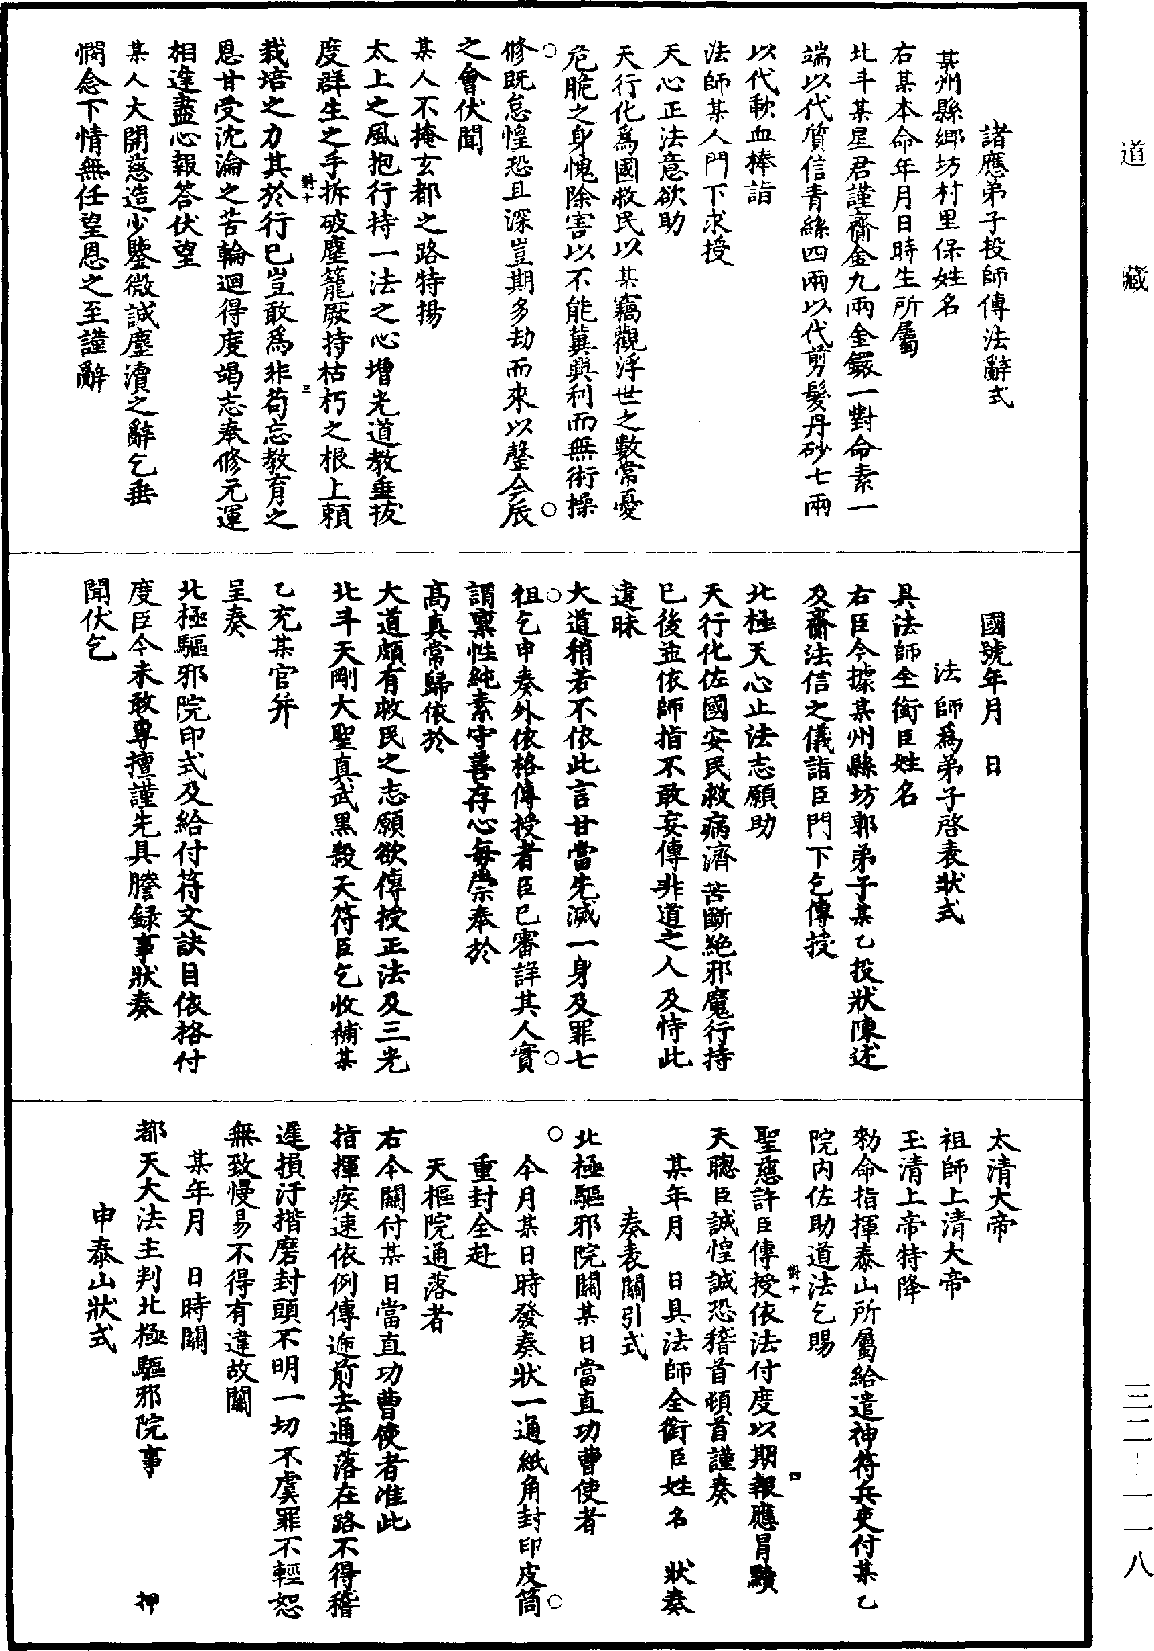 道藏
三二―一一八
諸應弟子投師傳法辭式
某州縣鄉坊村里保姓名
右某本命年月日時生所屬
北斗某星君謹齎金九兩金鐶一對命素一
端以代質信青絲四兩以代剪髮丹砂七兩
以代歃血捧詣
法師某人門下求授
天心正法意欲助
天行化爲國救民以某竊觀浮世之數常憂
危脆之身愧除害以不能冀興利而無術操
修既怠惶恐且深豈期多劫而來以罄今辰
之會伏聞
某人不掩玄都之路特揚
太上之風抱行持一法之心增光道教垂拔
度群生之手拆破塵籠厥持枯朽之根上頼
栽培之力其於行已豈敢爲非苟忘教育之
恩甘受沈淪之苦輪迴得度竭志奉修元運
相逢盡心報答伏望
某人大開慈造少鑒微誠塵瀆之辭乞垂
憫念下情無任望恩之至謹辭
國號年月　日
法師爲弟子啓表狀式
具法師全銜臣姓名
右臣今據某州縣坊郭弟子某乙投狀陳述
及齎法信之儀詣臣門下乞傳授
北極天心正法志願助
天行化佐國安民救病濟苦斷絶邪魔行持
已後並依師指不敢妄傳非道之人及恃此
違昧
大道稍若不依此言甘當先滅一身及罪七
祖乞申奏外依格傳授者臣已審詳其人實
謂稟性純素守善存心每崇奉於
高真常歸依於
大道頗有救民之志願欲傳授正法及三光
北斗天剛大聖真武黑殺天符臣乞收補某
乙充某官并
呈奏
北極驅邪院印式及給付符文訣目依格付
度臣今未敢專擅謹先具謄録事狀奏
聞伏乞
太清大帝
祖師上清大帝
玉清上帝特降
勑命指揮泰山所屬給遣神符兵吏付某乙
院内佐助道法乞賜
聖慈許臣傳授依法付度以期報應冒黷
天聰臣誠惶誠恐稽首頓首謹奏
某年月　日具法師全銜臣姓名　狀奏
奏表關引式
北極驅邪院關某日當直功曹使者
今月某日時發奏狀一通紙角封印皮筒
重封全赴
天樞院通落者
右今關付某日當直功曹使者准此
指揮疾速依例傳遞前去通落在路不得稽
遲損汙揩磨封頭不明一切不虞罪不輕恕
無致慢易不得有違故關
某年月　日時關
都天大法主判北極驅邪院事　押
申泰山狀式